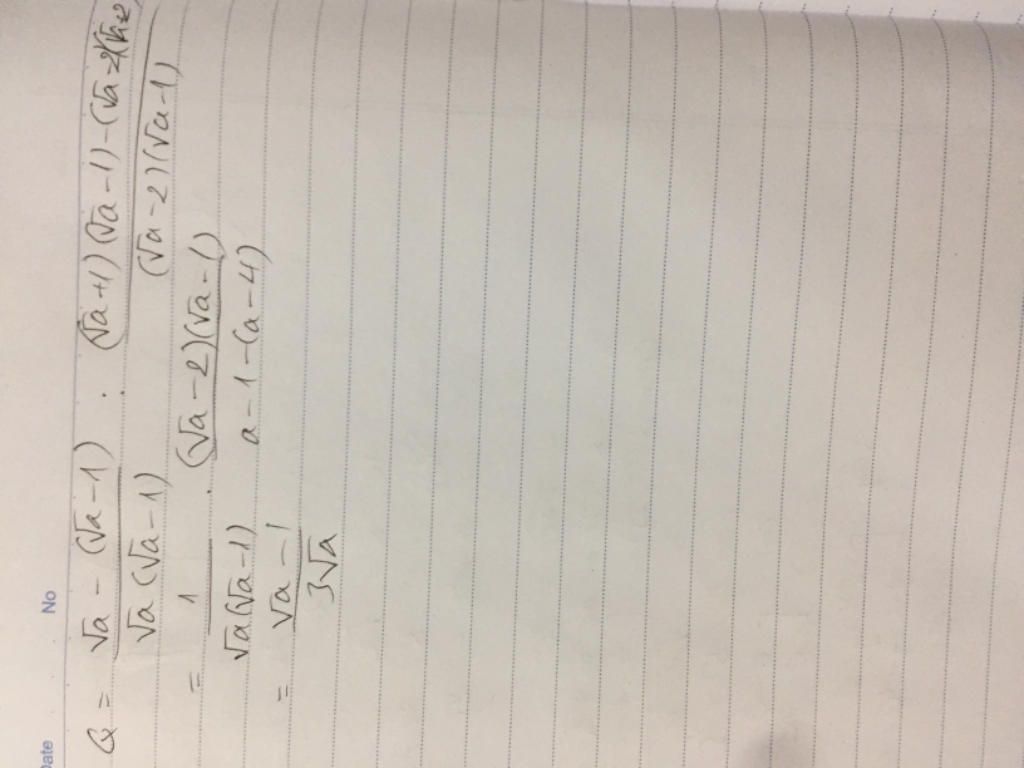 Date No
Q = √a - (√a - 1) / √a (√a - 1) : (√a + 1)(√a - 1) - (√a - 2)(√a+2) / (√a - 2)(√a - 1)
= 1 / √a(√a - 1) . (√a - 2)(√a - 1) / a - 1 - (a - 4)
= √a - 1 / 3√a